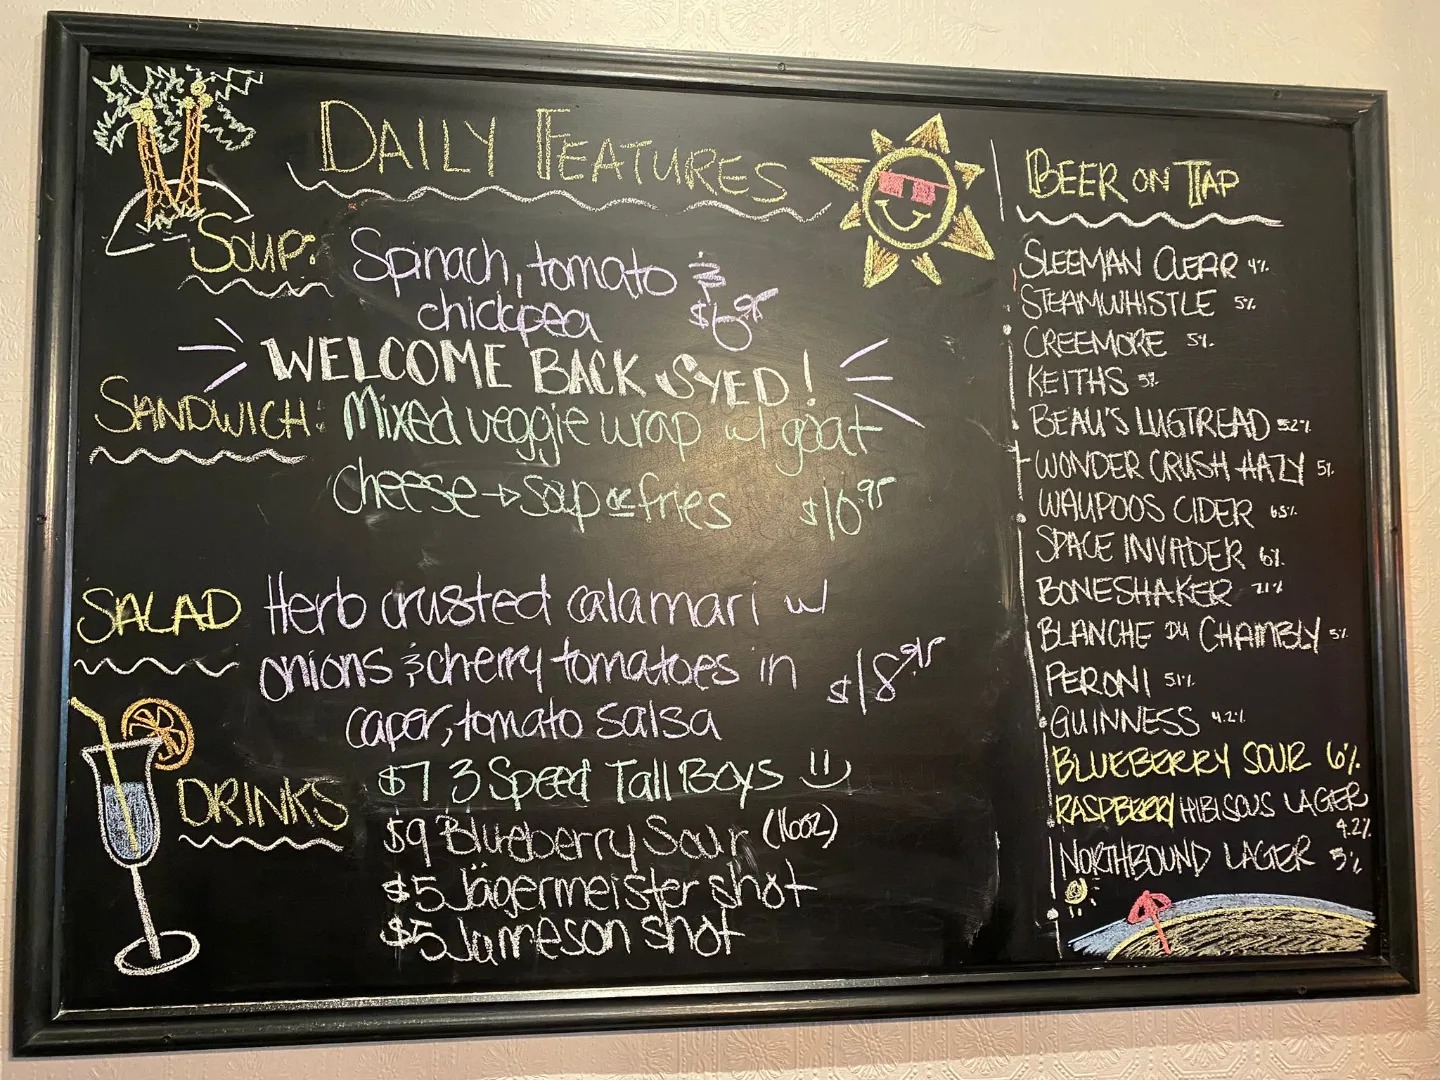 DAILY FEATURES
SOUP: Spinach, tomato &
chickpea $6.95
WELCOME BACK SYED!
SANDWICH: Mixed veggie wrap w/ goat
cheese → soup or fries $16.95
SALAD Herb crusted calamari w/
onions & cherry tomatoes in $18.95
caper, tomato salsa
DRINKS $7 3 Speed Tall Boys
$9 Blueberry Sour (16oz)
$5 Jägermeister shot
$5 Jameson shot
BEER ON TAP
SLEEMAN CLEAR 4%
STEAMWHISTLE 5%
CREEMORE 5%
KEITHS 5%
BEAU'S LUGTREAD 5.2%
WONDER CRUSH HAZY 5%
WAUPOOS CIDER 6.5%
SPACE INVADER 6%
BONESHAKER 7.1%
BLANCHE DU CHAMBLY 5%
PERONI 5.1%
GUINNESS 4.2%
BLUEBERRY SOUR 6%
RASPBERRY HIBISCUS LAGER
4.2%
NORTHBOUND LAGER 5%